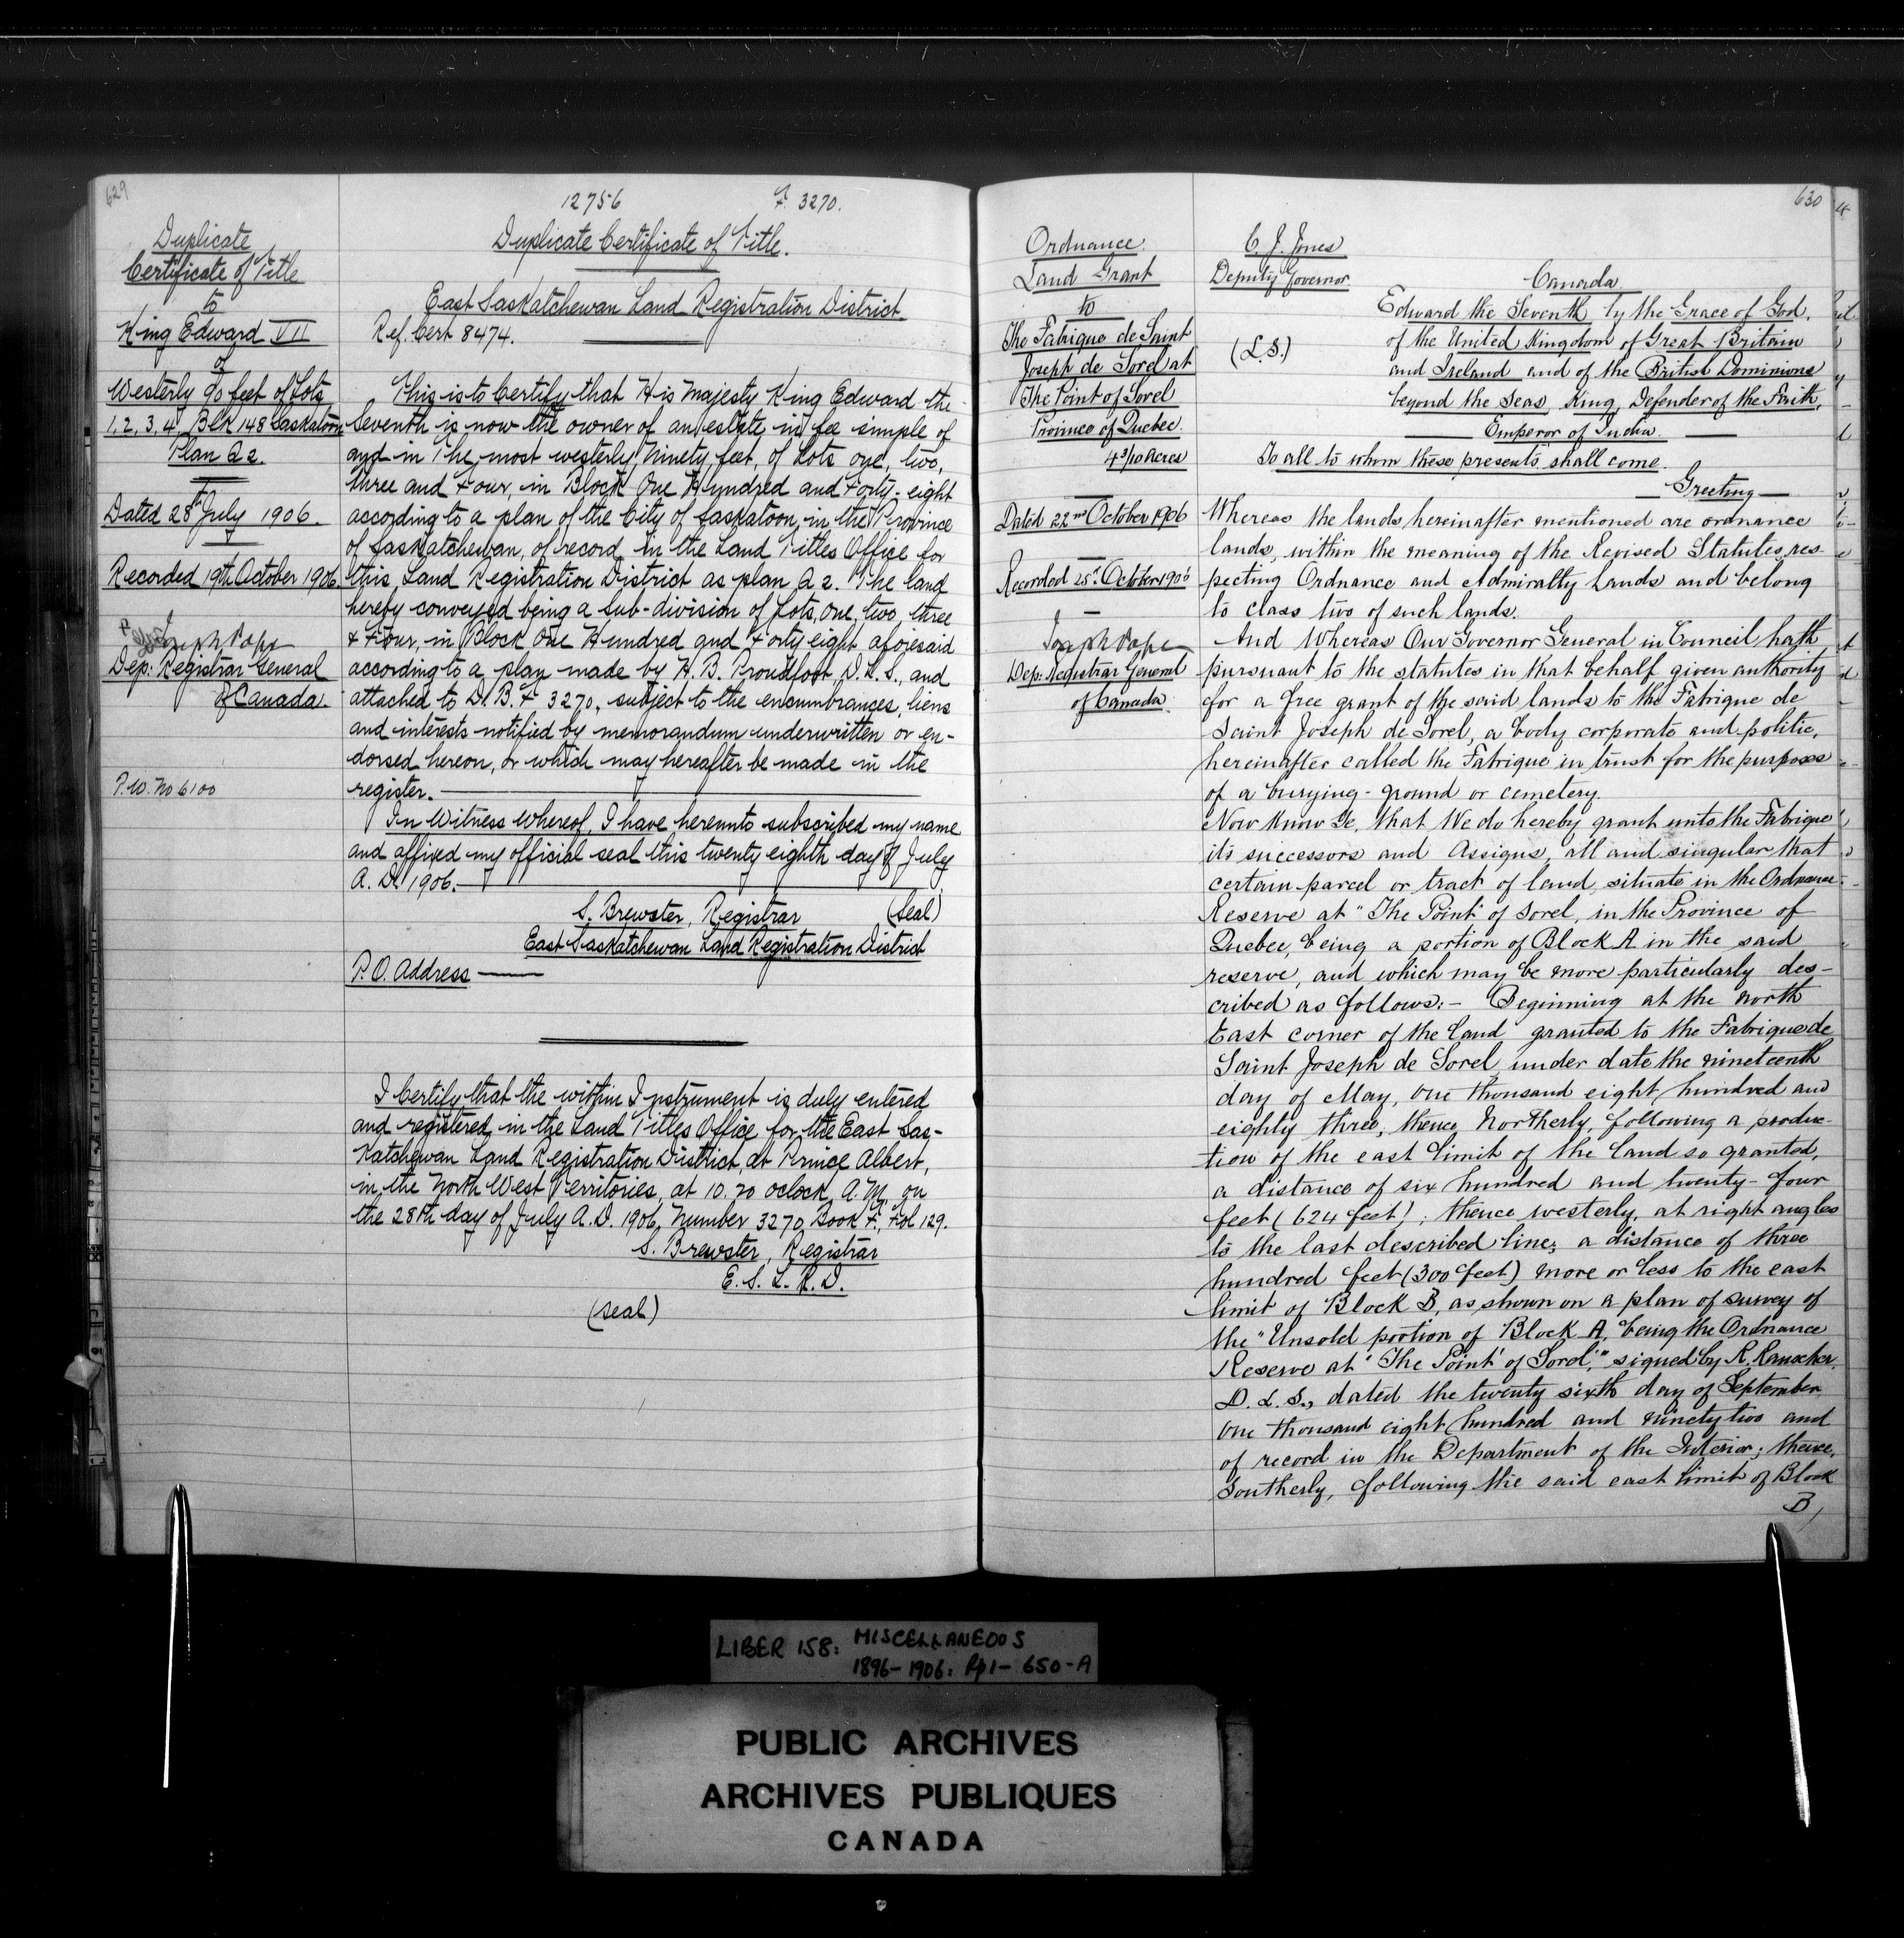 629
12756 F. 3270.
Duplicate
Certificate of Title
to
King Edward VII
of
Westerly 90 feet of Lots
1, 2, 3, 4, Blk 148 Saskatoon
Plan Q2.
Dated 28th July 1906.
Recorded 19th October 1906.
Joseph Pope
Dep: Registrar General
of Canada.
P.W. No 6100
Duplicate Certificate of Title.
East Saskatchewan Land Registration District
Ref. Cert 8474.
This is to Certify that His Majesty King Edward the
Seventh is now the owner of an estate in fee simple of
and in The most westerly Ninety feet, of Lots one, two,
three and Four, in Block One Hundred and Forty-eight
according to a plan of the City of Saskatoon, in the Province
of Saskatchewan, of record in the Land Titles Office for
this Land Registration District as plan Q2. The land
hereby conveyed being a sub-division of Lots, one, two, three
& Four, in Block One Hundred and Forty eight aforesaid
according to a plan made by H. B. Proudfoot, D. L. S., and
attached to D. B. F 3270, subject to the encumbrances, liens
and interests notified by memorandum underwritten or en-
dorsed hereon, or which may hereafter be made in the
register.
In Witness Whereof, I have hereunto subscribed my name
and affixed my official seal this twenty eighth day of July
A. D. 1906.
S. Brewster, Registrar (Seal)
East Saskatchewan Land Registration District
P. O. Address
I Certify that the within Instrument is duly entered
and registered in the Land Titles Office for the East Sas-
katchewan Land Registration District at Prince Albert,
in the North West Territories, at 10.20 oclock A.M. on
the 28th day of July A.D. 1906, Number 3270 Book F., Fol 129.
S. Brewster, Registrar
E. S. L. R. D.
(seal)
630
Ordnance
Land Grant
to
The Fabrique de Saint
Joseph de Sorel at
The Point of Sorel
Province of Quebec.
4 3/10 Acres
Dated 22nd October 1906
Recorded 25th October 1906
Joseph Pope
Dep: Registrar General
of Canada.
C. J. Jones
Deputy Governor
(L.S.)
Canada.
Edward the Seventh by the Grace of God,
of the United Kingdom of Great Britain
and Ireland and of the British Dominions
beyond the Seas, King, Defender of the Faith,
Emperor of India.
To all to whom these presents shall come.
Greeting
Whereas the lands hereinafter mentioned are ordnance
lands, within the meaning of the Revised Statutes, res-
pecting Ordnance and Admiralty Lands and belong
to class two of such lands.
And Whereas Our Governor General in Council hath
pursuant to the statutes in that behalf given authority
for a free grant of the said lands to the Fabrique de
Saint Joseph de Sorel, a body corporate and politic,
hereinafter called the Fabrique in trust for the purposes
of a burying-ground or cemetery.
Now Know Ye, that We do hereby grant unto the Fabrique
its successors and Assigns, all and singular that
certain parcel or tract of land, situate in the Ordnance
Reserve at "The Point" of Sorel, in the Province of
Quebec, being a portion of Block A in the said
reserve, and which may be more particularly des-
cribed as follows:- Beginning at the north
East corner of the land granted to the Fabrique de
Saint Joseph de Sorel under date the nineteenth
day of May, one thousand eight hundred and
eighty three, thence Northerly, following a produc-
tion of the east limit of the land so granted,
a distance of six hundred and twenty-four
feet (624 feet); thence westerly, at right angles
to the last described line; a distance of three
hundred feet (300 feet) more or less to the east
limit of Block B, as shown on a plan of survey of
the "Unsold portion of Block A, being the Ordnance
Reserve at 'The Point' of Sorel," signed by R. Rauscher,
D. L. S., dated the twenty sixth day of September
one thousand eight hundred and ninety two and
of record in the Department of the Interior; thence,
Southerly, following the said east limit of Block
B,
LIBER 158: MISCELLANEOUS
1896-1906: Pp1-650-A
PUBLIC ARCHIVES
ARCHIVES PUBLIQUES
CANADA